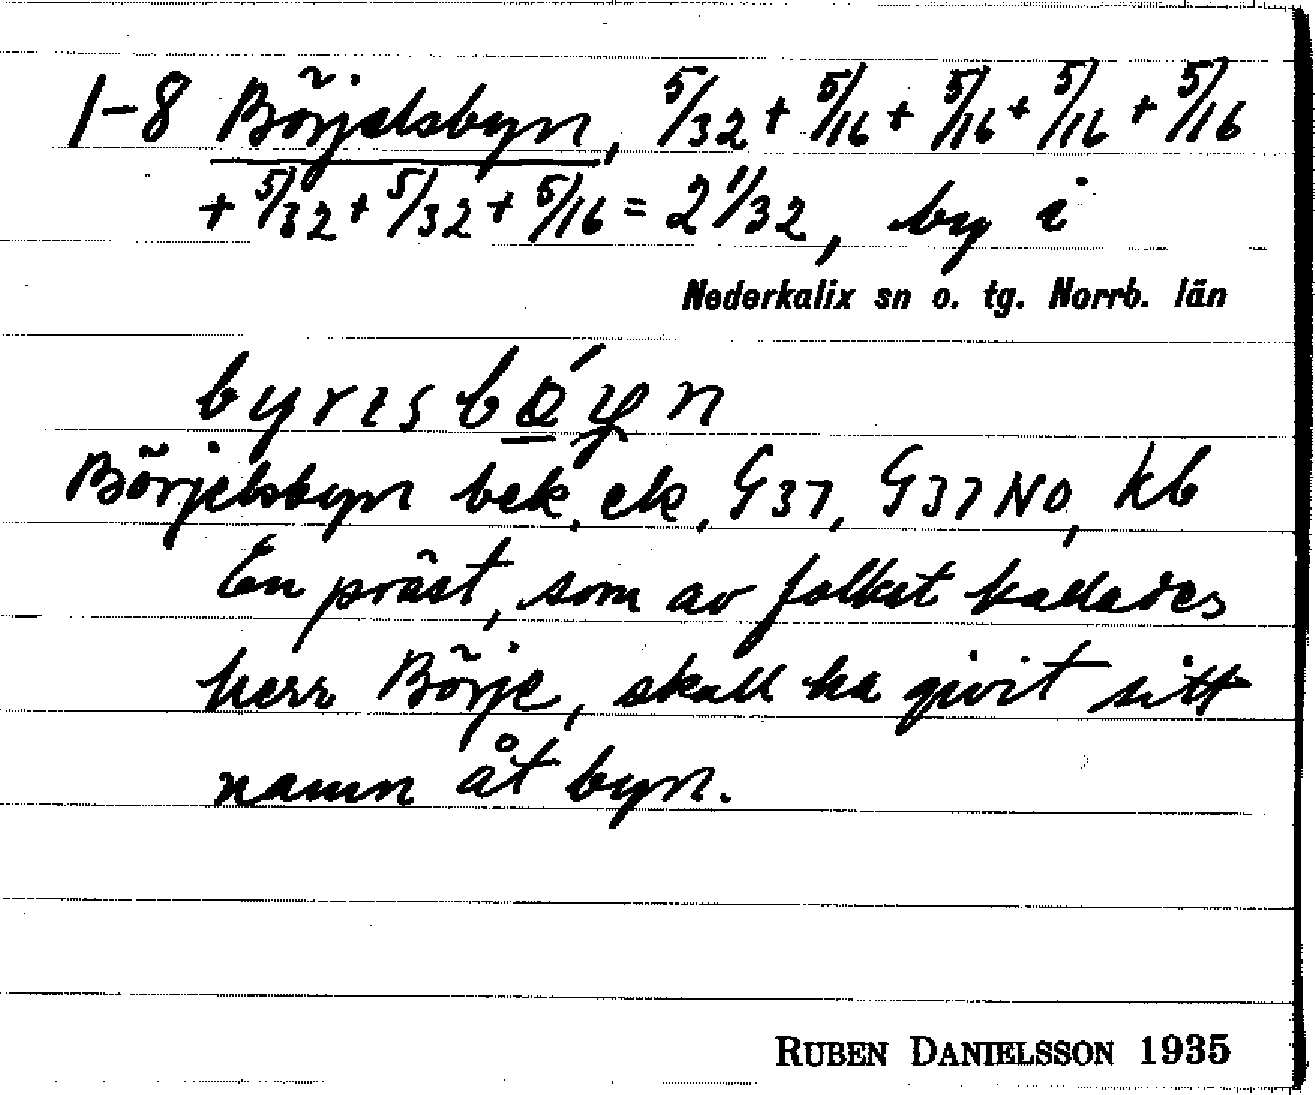 1-8 Börjelsbyn, 5/32 + 5/16 + 5/16 + 5/16 + 5/16
+ 5/32 + 5/32 + 5/16 = 2 1/32, by i
Nederkalix sn o. tg. Norrb. län
Börjelsbyn bek. ek, G37, G37NO, kb
En präst, som av folket kallades
herr Börje, skall ha givit sitt
namn åt byn.
RUBEN DANIELSSON 1935